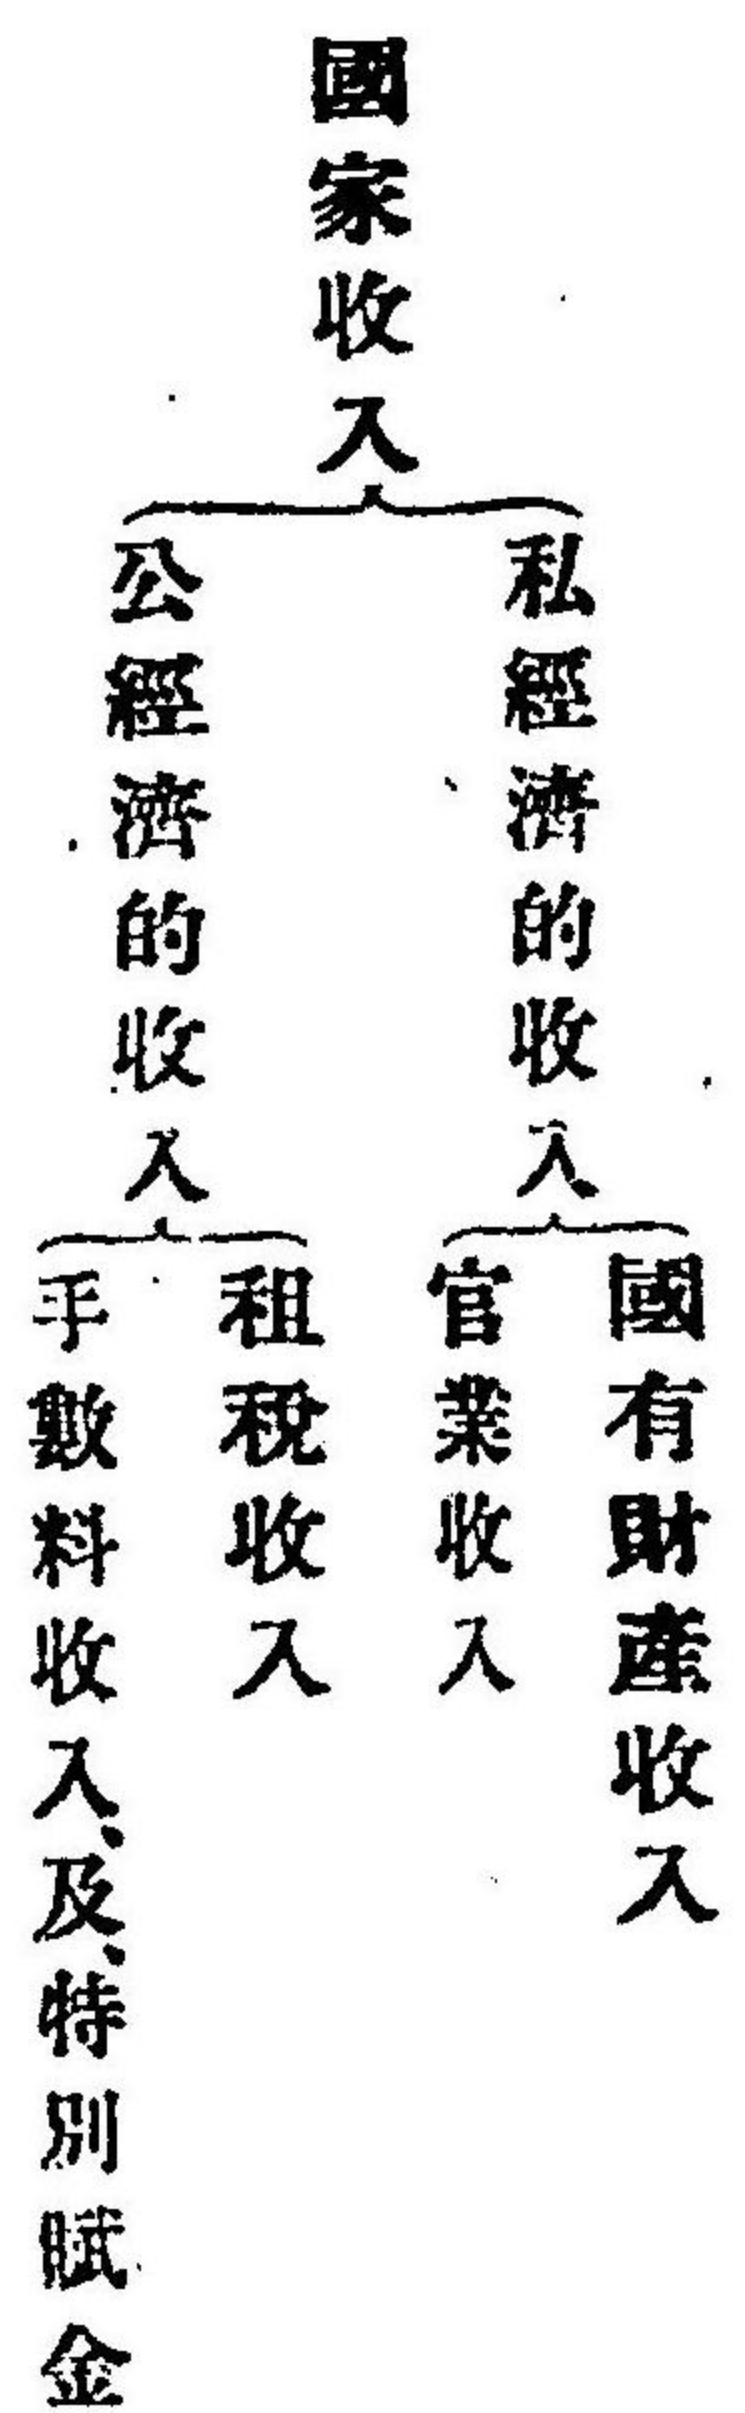 國家收入
私經濟的收入
國有財產收入
官業收入
公經濟的收入
租稅收入
手數料收入、及、特別賦金